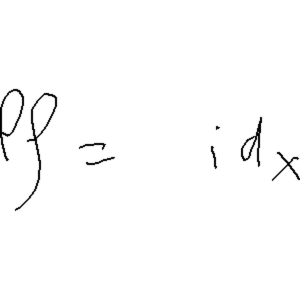 ℓf = id_x